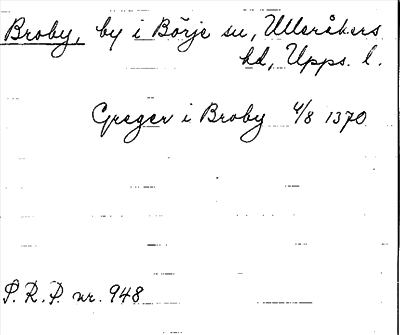 Broby, by i Börje sn, Ulleråkers
hd, Upps. l.
Greger i Broby 4/8 1370
S.R.P. nr. 948